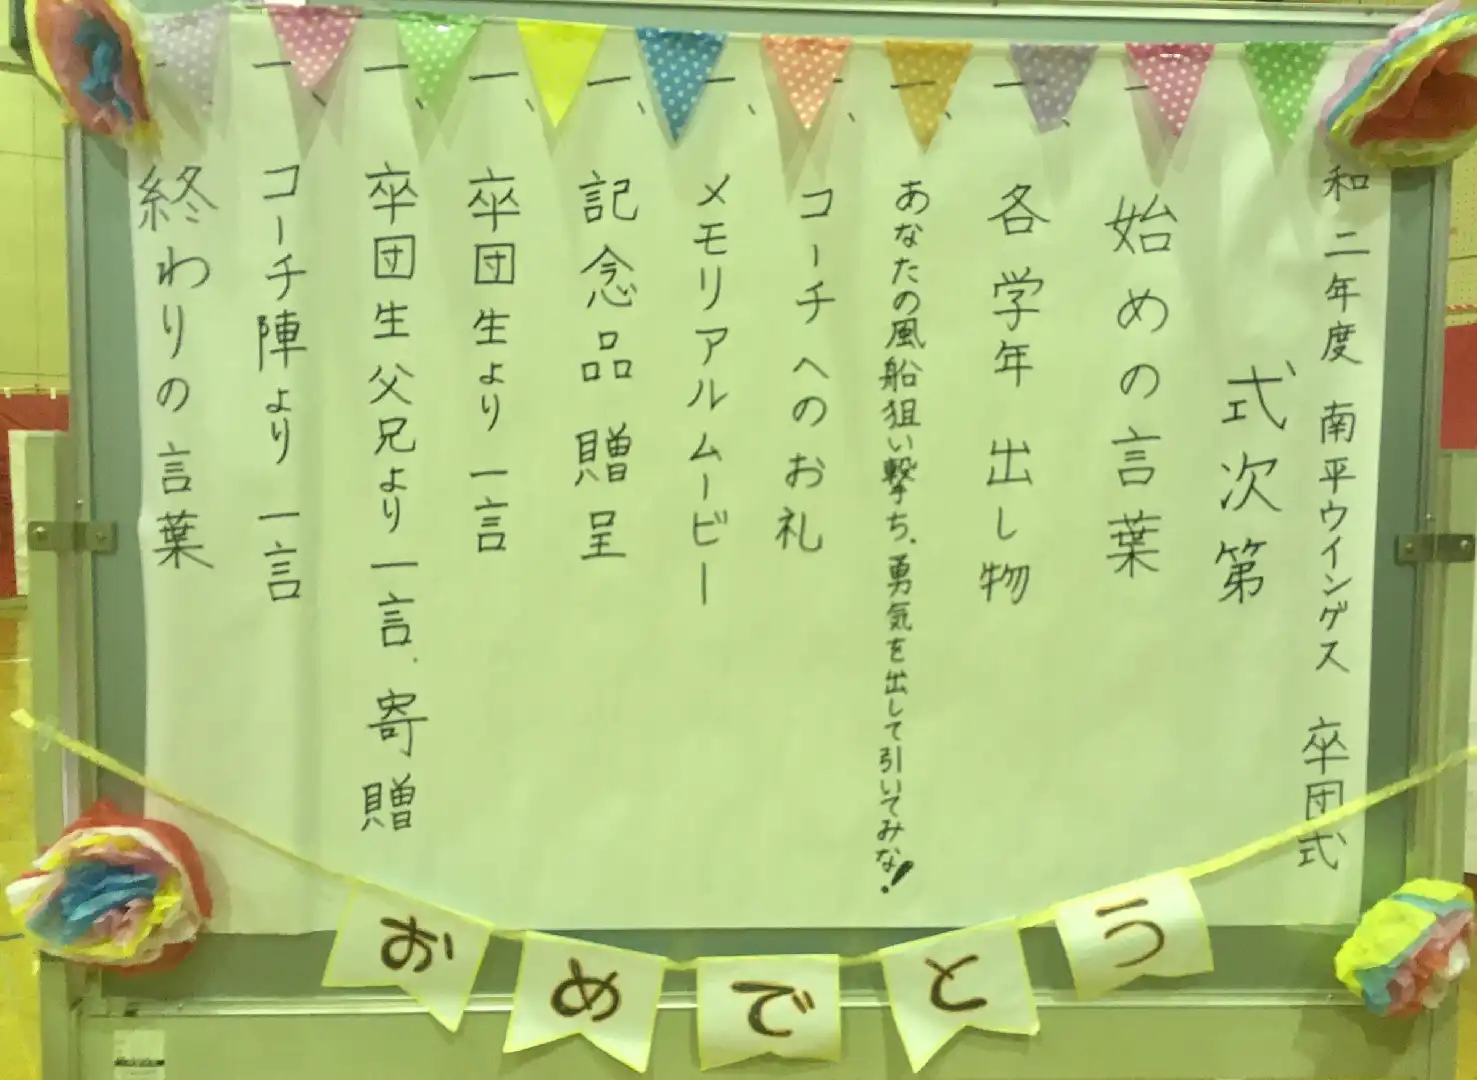 和二年度 南平ウイングス 卒団式
式次第
一、始めの言葉
一、各学年 出し物
一、あなたの風船狙い撃ち、勇気を出して引いてみな!
一、コーチへのお礼
一、メモリアルムービー
一、記念品 贈呈
一、卒団生より 一言
一、卒団生父兄より 一言、寄贈
一、コーチ陣より 一言
一、終わりの言葉
おめでとう